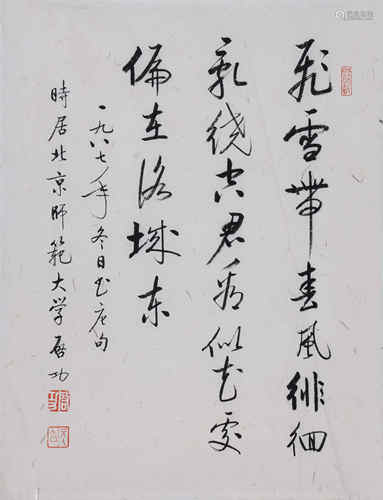 飛雪帶春風徘徊
亂繞空君看似花處
偏在洛城東
一九八七年冬日书唐句
時居北京師範大学啟功